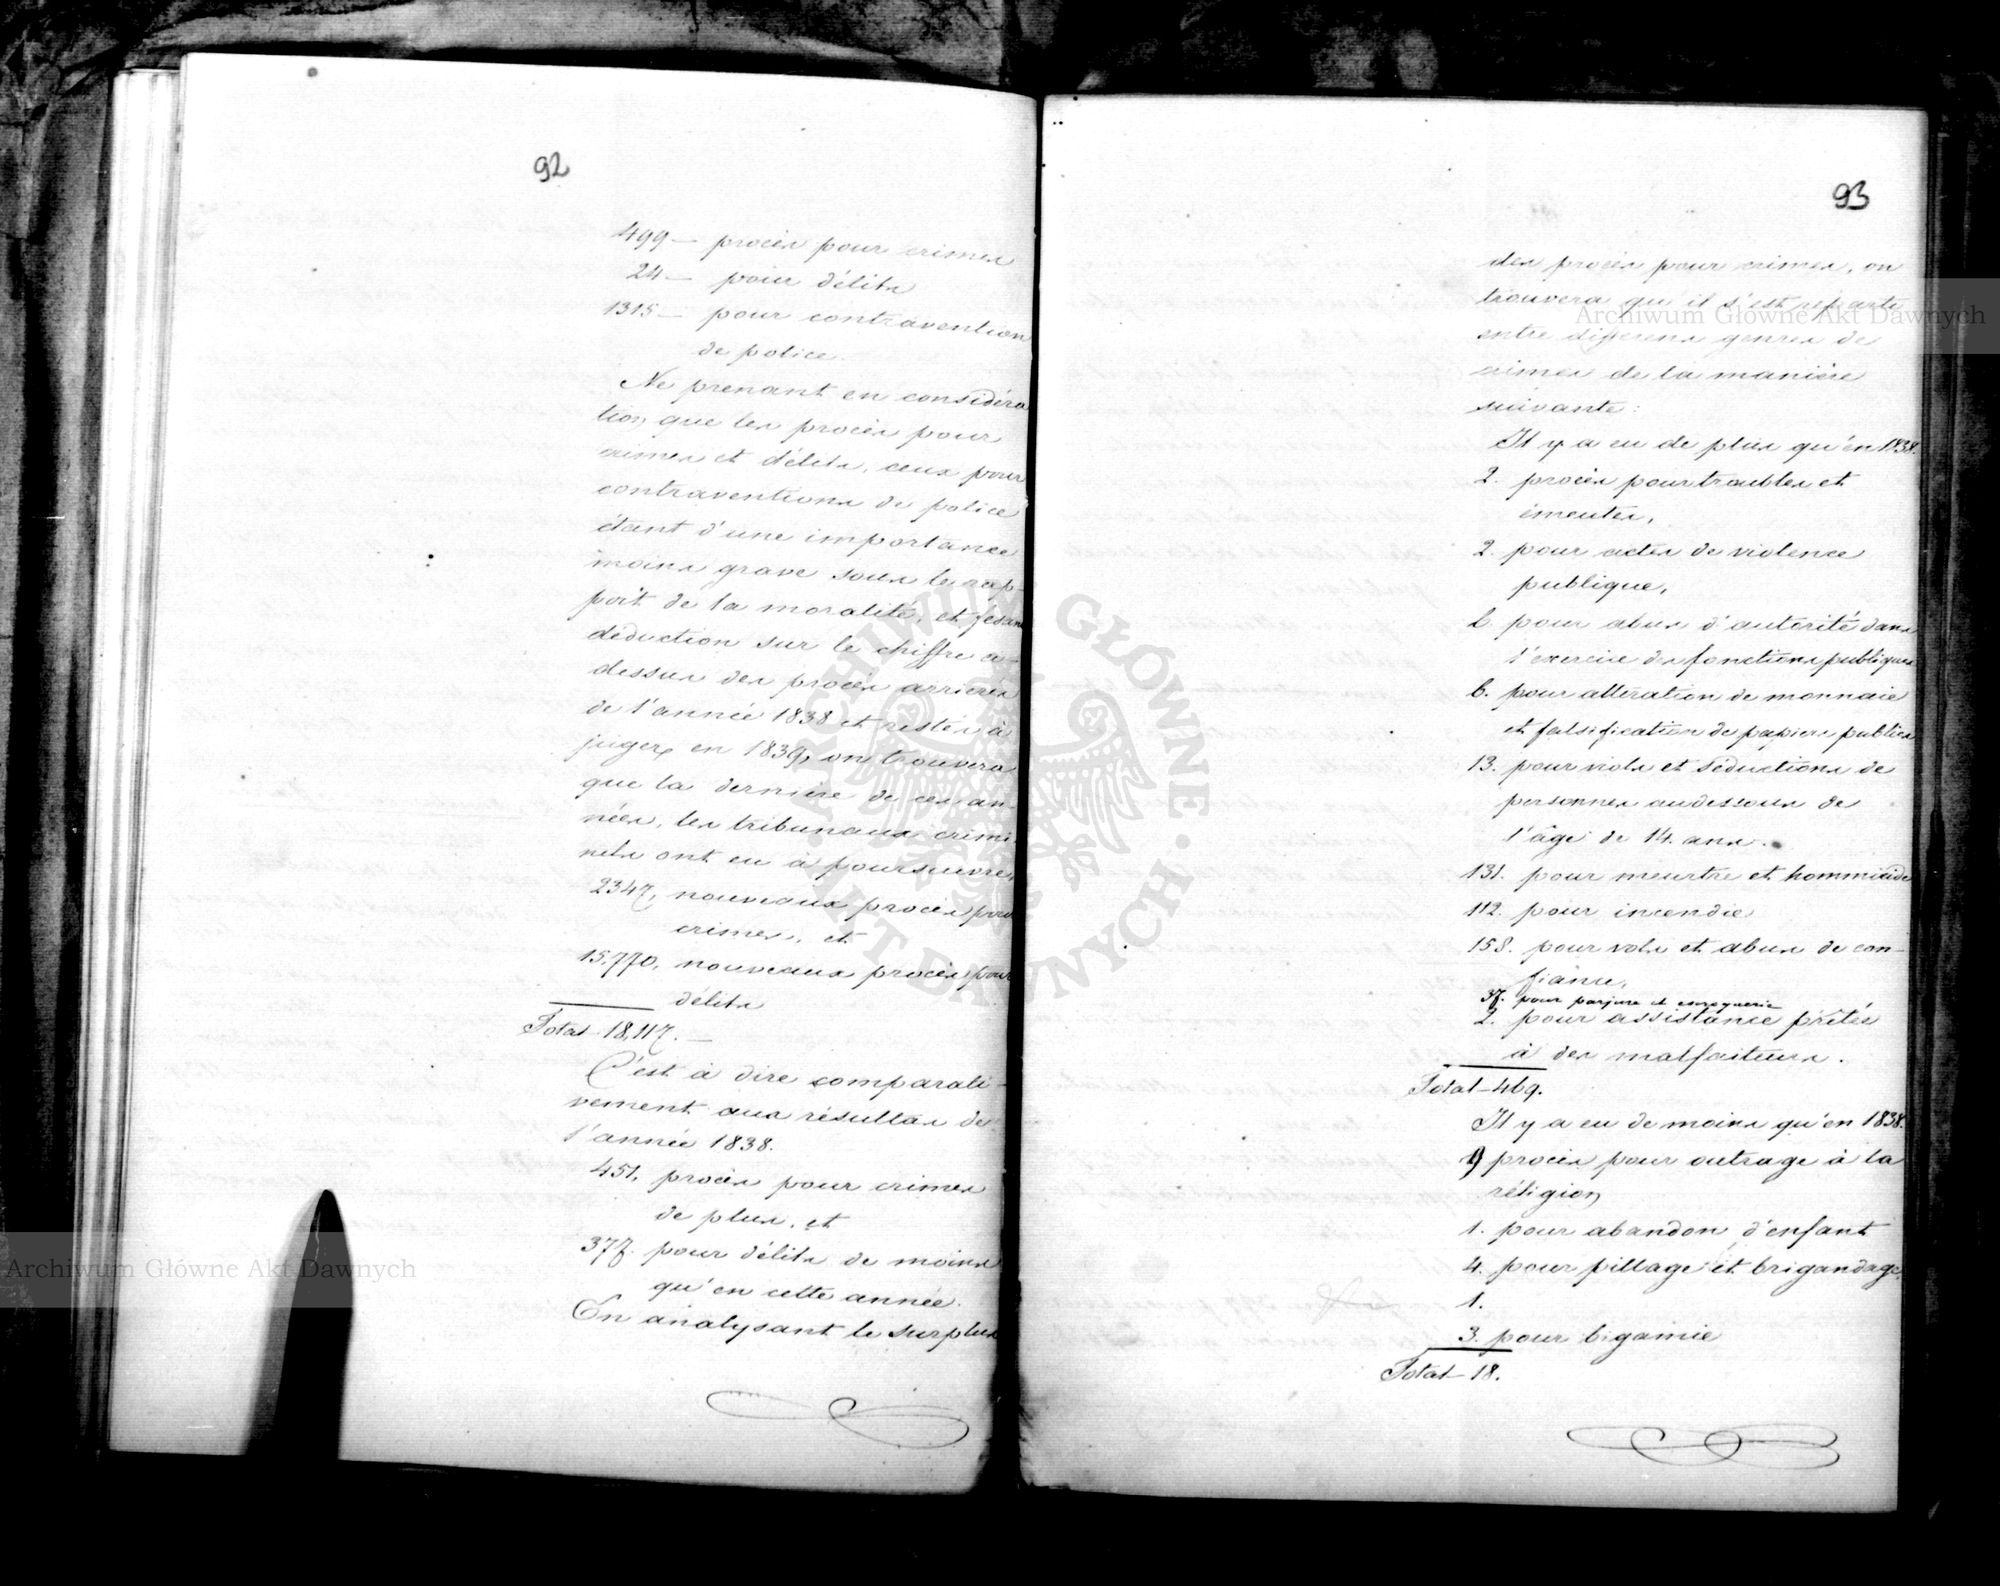 92
499 — procès pour crimes
24 — pour délits
1315 — pour contravention
de police.
Ne prenant en considéra
tion que les procès pour
crimes et délits, ceux pour
contraventions de police
étant d'une importance
moins grave sous le rap-
port de la moralité, et fesant
déduction sur le chiffre ci-
dessus des procès arrierés
de l'année 1838 et restés à
juger en 1839, on trouvera
que la dernière de ces an-
nées, les tribunaux crimi-
nels ont eu à poursuivre,
2347, nouveaux procès pour
crimes, et
15,770, nouveaux procès pour
délits
Total 18,117. —
C'est à dire comparati-
vement aux résultas de
l'année 1838.
451, procès pour crimes
de plus, et
377. pour délits de moins
qu'en cette année.
En analysant le surplus
93
des procès pour crimes, on
trouvera qu'il s'est réparti
entre diferens genres de
crimes de la manière
suivante:
Il y a eu de plus qu'en 1838.
2. procès pour troubles et
émeutes,
2. pour actes de violence
publique,
6. pour abus d'autorité dans
l'exercise des fonctions publiques
6. pour alteration de monnaie
et falsification de papiers publics
13. pour viols et séductions de
personnes audessous de
l'âge de 14. ans.
131. pour meurtre et hommicide
112. pour incendie
158. pour vols et abus de con-
fiance,
37. pour parjure et escroquerie
2. pour assistance prêtée
à des malfaiteurs.
Total — 469.
Il y a eu de moins qu'en 1838.
9 procès pour outrage à la
réligion
1. pour abandon d'enfant
4. pour pillage et brigandage,
1.
3. pour bigamie
Total — 18.
Archiwum Główne Akt Dawnych
Archiwum Główne Akt Dawnych
ARCHIWUM GŁÓWNE AKT DAWNYCH